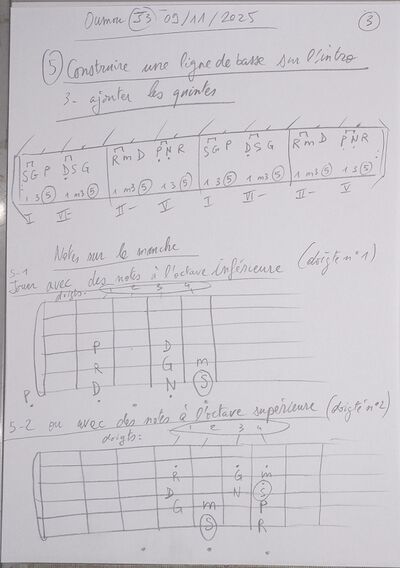 Oumou J3 09/11/2025 3
5 Construire une ligne de basse sur l'intro
3 - ajouter les quintes
S G P D S G R m D P N R S G P D S G R m D P N R
1 3 5 1 m3 5 1 m3 5 1 3 5 1 3 5 1 m3 5 1 m3 5 1 3 5
I VI- II- V I VI- II- V
Notes sur le manche
5-1
Jouer avec des notes à l'octave inférieure (doigté n°1)
doigts: 1 2 3 4
P D
R G m
P D N S
5-2 ou avec des notes à l'octave supérieure (doigté n°2)
doigts: 1 2 3 4
R G m
D N S
G m P
S R